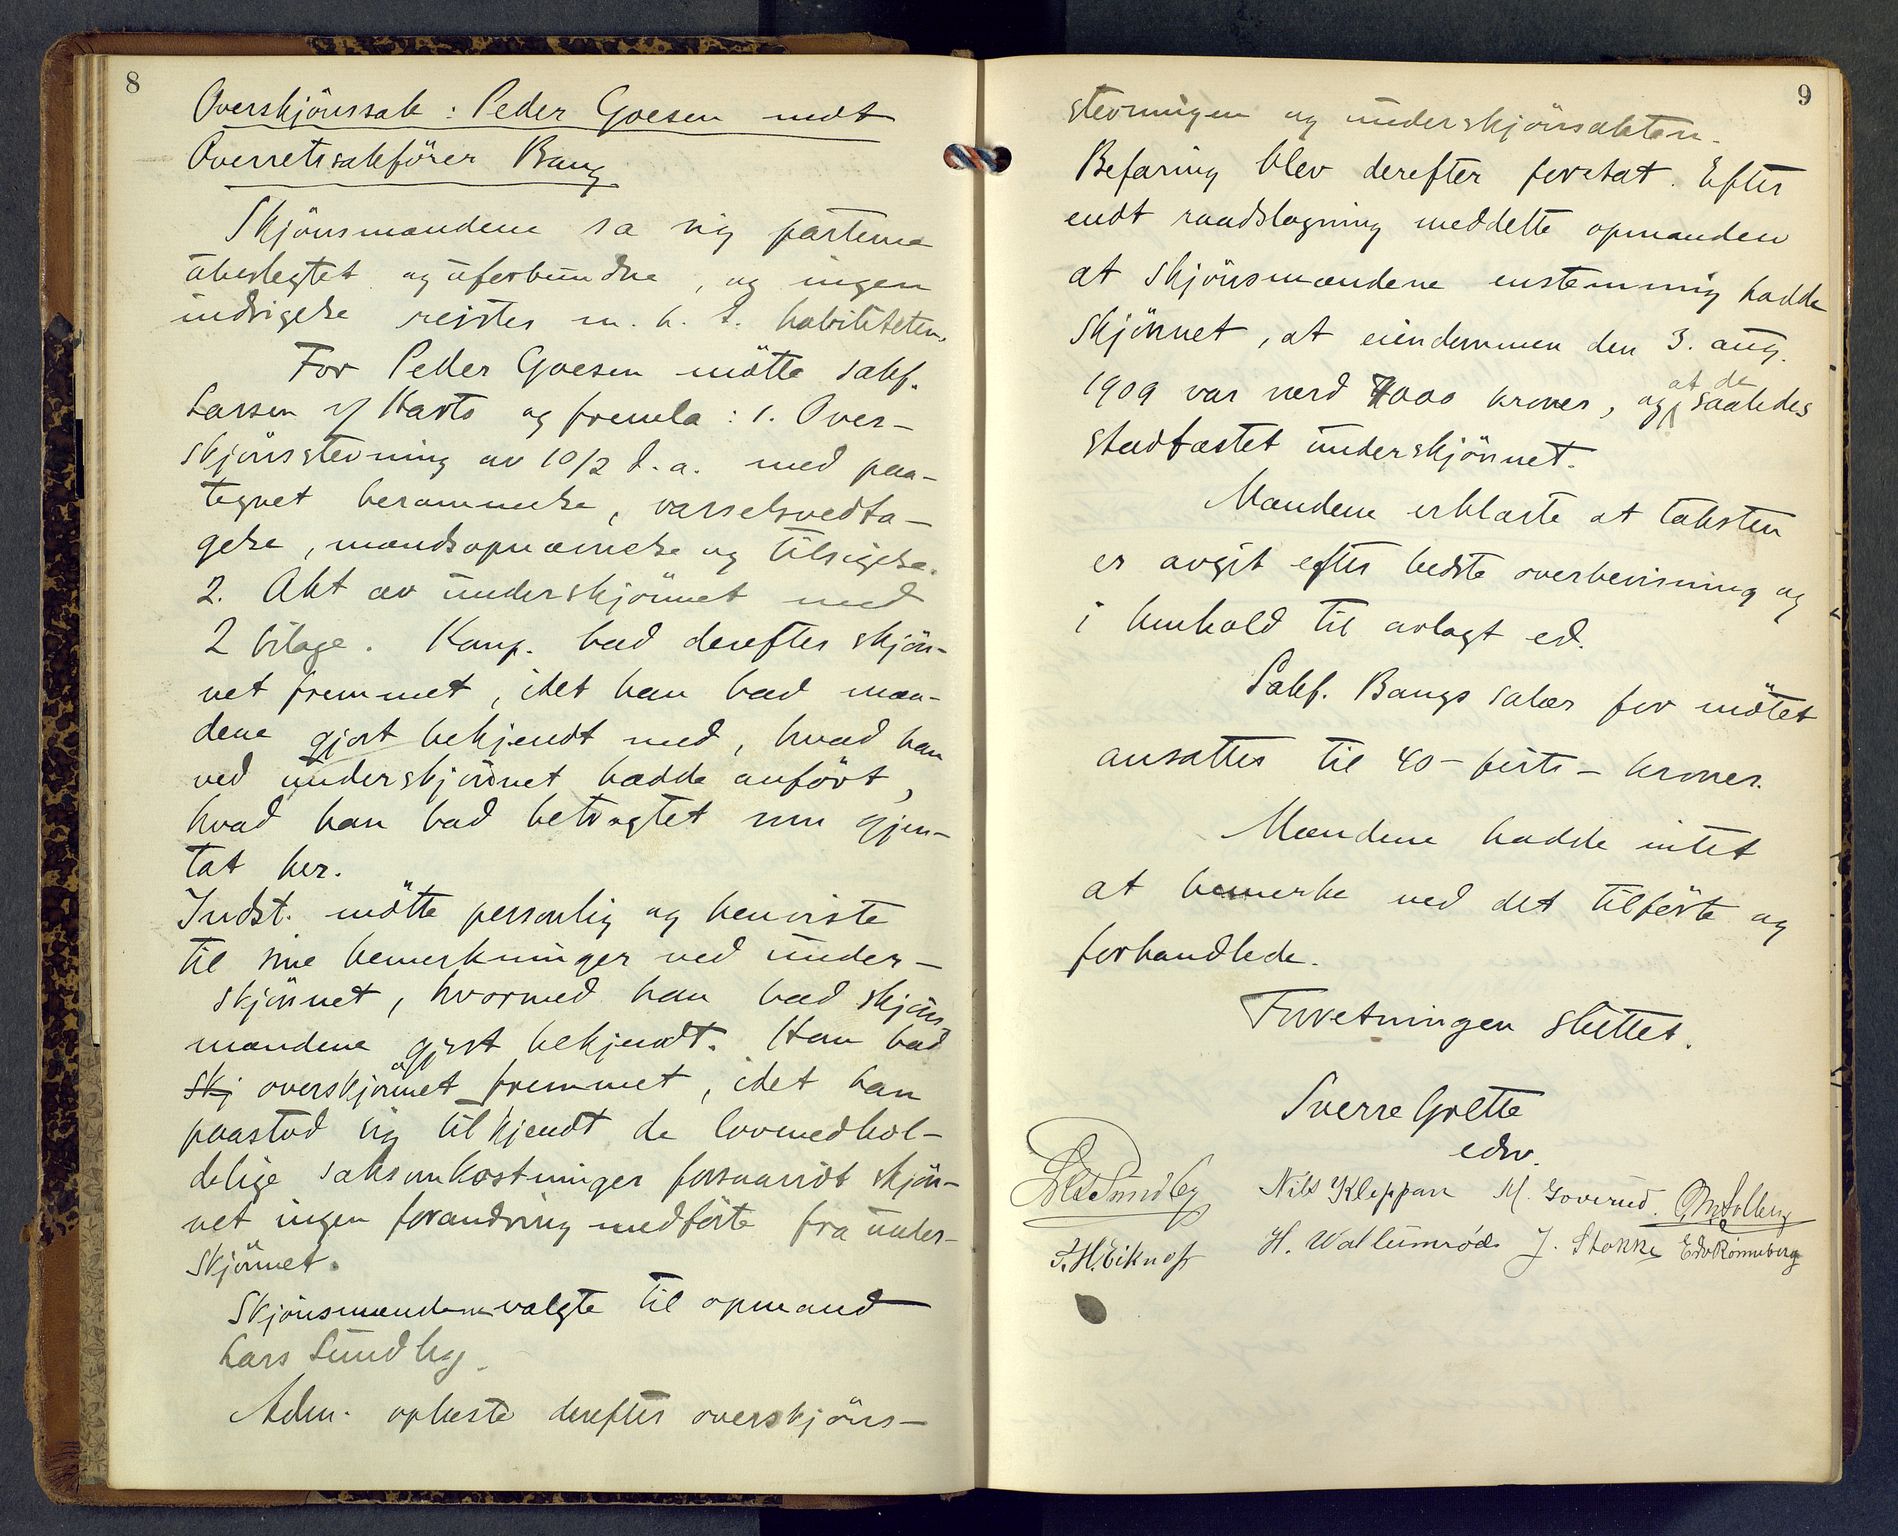 8
Overskjönssak : Peder Goesen mot
Overretssakförer Bang
Skjönsmændene sa sig parterne
ubeslegtet og uforbundne, og ingen
indsigelse reistes m. h. t. habiliteten.
For Peder Goesen mötte sakf.
Larsen og fremla : 1. Over-
skjönsstevning av 10/2 d. a. med paa-
tegnet berammelse, varselsvedta-
gelse, mandsopnævnelse og tilsigelse.
2. Akt av underskjönnet med
2 bilage. Komp. bad derefter skjön-
net fremmet, idet han bad mæn-
dene gjort bekjendt med, hvad han
ved underskjönnet hadde anfört,
hvad han bad betragtet som gjen-
tat her.
Indst. mötte personlig og henviste
til sine bemerkninger ved under-
skjönnet, hvormed han bad skjöns-
mændene gjort bekjendt. Han bad
skj overskjönnet fremmet, idet han
paastod sig tilkjendt de lovmedhol-
delige saksomkostninger forsaavidt skjön-
net ingen forandring medförte fra under-
skjönnet.
Skjönsmændene valgte til opmand
Lars Sundby.
Adm. oplæste derefter overskjöns-
9
stevningen og underskjönsakten.
Befaring blev derefter foretat. Efter
endt raadslagning meddelte opmanden
at skjönsmændene enstemmig hadde
skjönnet, at eiendommen den 3. aug.
1909 var værd 7000 kroner, og at de saaledes
stadfæstet underskjönnet.
Mændene erklærte at taksten
er avgit efter bedste overbevisning og
i henhold til avlagt ed.
Sakf. Bangs salær for mötet
ansattes til 40 - förti - kroner.
Mændene hadde intet
at bemerke ved det tilförte og
forhandlede.
Forretningen sluttet.
Sverre Grette
edsv.
L. Sundby Nils Kleppan M. Goverud. O. M. Solberg
J. H. Eiknos H. Wallumrød J. Stokke Edv Rønneberg